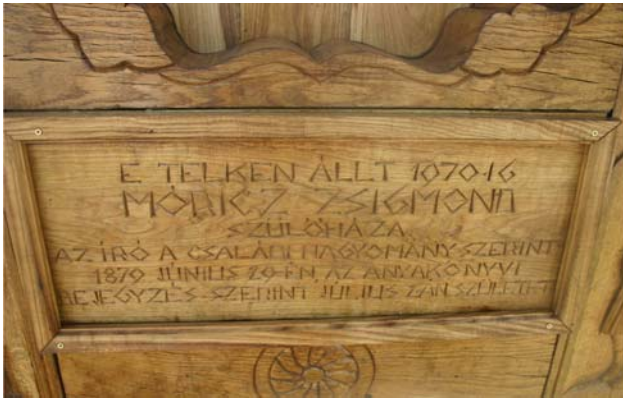 E TELKEN ÁLLT 1970-IG
MÓRICZ ZSIGMOND
SZÜLŐHÁZA
AZ ÍRÓ A CSALÁDI HAGYOMÁNY SZERINT
1879 JÚNIUS 29-ÉN, AZ ANYAKÖNYVI
BEJEGYZÉS SZERINT JÚLIUS 2-ÁN SZÜLETETT